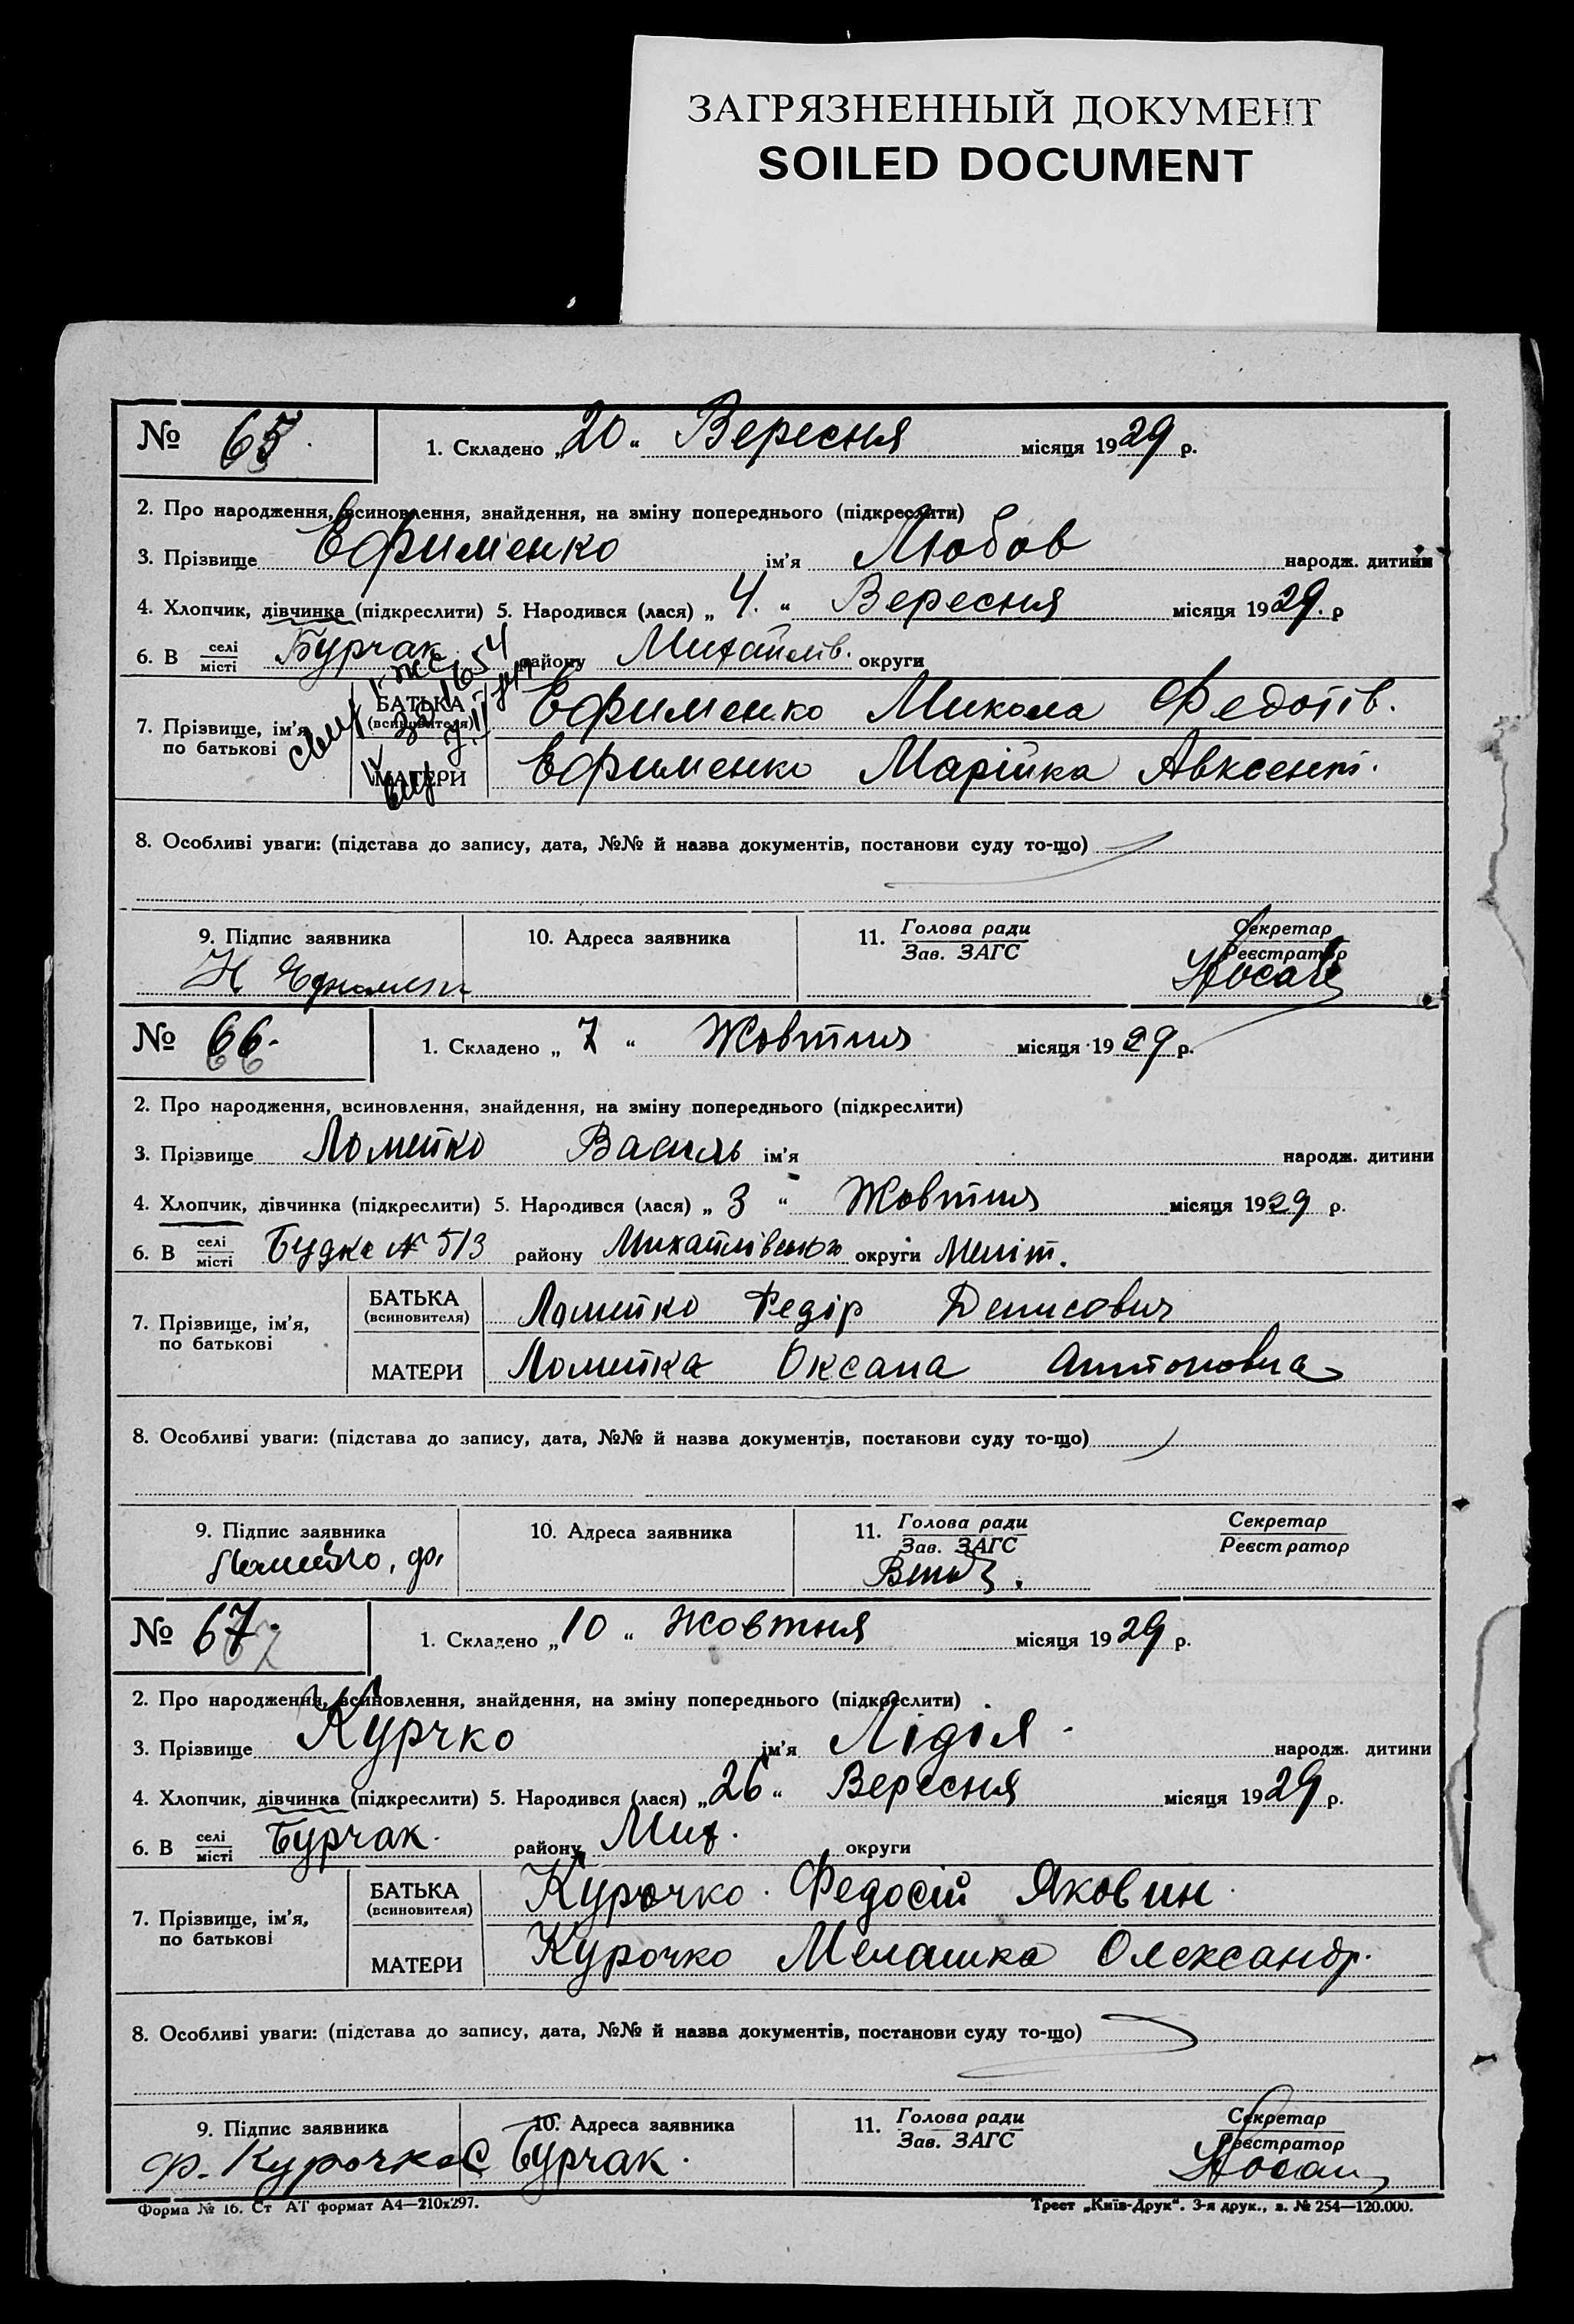 ЗАГРЯЗНЕННЫЙ ДОКУМЕНТ
SOILED DOCUMENT
№ 65. 1. Складено „20“ Вересня місяця 1929 р.
2. Про народження, всиновлення, знайдення, на зміну попереднього (підкреслити)
3. Прізвище Ефименко ім'я Любов народж. дитини
4. Хлопчик, дівчинка (підкреслити) 5. Народився (лася) „4.“ Вересня місяця 1929. р
6. В селі/місті Бурчак району Михайлів. округи
7. Прізвище, ім'я по батькові
БАТЬКА (всиновителя) Ефименко Микола Федотів.
МАТЕРИ Ефименко Марійка Авксент.
8. Особливі уваги: (підстава до запису, дата, №№ й назва документів, постанови суду то-що)
9. Підпис заявника 10. Адреса заявника 11. Голова ради/Зав. ЗАГС Секретар/Реєстратор
№ 66. 1. Складено „7“ Жовтня місяця 1929 р.
2. Про народження, всиновлення, знайдення, на зміну попереднього (підкреслити)
3. Прізвище Ломейко Василь ім'я народж. дитини
4. Хлопчик, дівчинка (підкреслити) 5. Народився (лася) „3“ Жовтня місяця 1929 р.
6. В селі/місті Будка № 513 району Михайлівсько округи Меліт.
7. Прізвище, ім'я, по батькові
БАТЬКА (всиновителя) Ломейко Федір Денисович
МАТЕРИ Ломейка Оксана Антоновна
8. Особливі уваги: (підстава до запису, дата, №№ й назва документів, постанови суду то-що)
9. Підпис заявника 10. Адреса заявника 11. Голова ради/Зав. ЗАГС Секретар/Реєстратор
№ 67. 1. Складено „10“ Жовтня місяця 1929 р.
2. Про народження, всиновлення, знайдення, на зміну попереднього (підкреслити)
3. Прізвище Курчко ім'я Лідія народж. дитини
4. Хлопчик, дівчинка (підкреслити) 5. Народився (лася) „26“ Вересня місяця 1929 р.
6. В селі/місті Бурчак. району Мих. округи
7. Прізвище, ім'я, по батькові
БАТЬКА (всиновителя) Курочко Федосій Яковин
МАТЕРИ Курочко Мелашка Олександр.
8. Особливі уваги: (підстава до запису, дата, №№ й назва документів, постанови суду то-що)
9. Підпис заявника 10. Адреса заявника 11. Голова ради/Зав. ЗАГС Секретар/Реєстратор
Ф. Курочка С Бурчак. Носан
Форма № 16. Ст АТ формат А4—210х297. Трест „Київ-Друк“. 3-я друк., з. № 254—120.000.